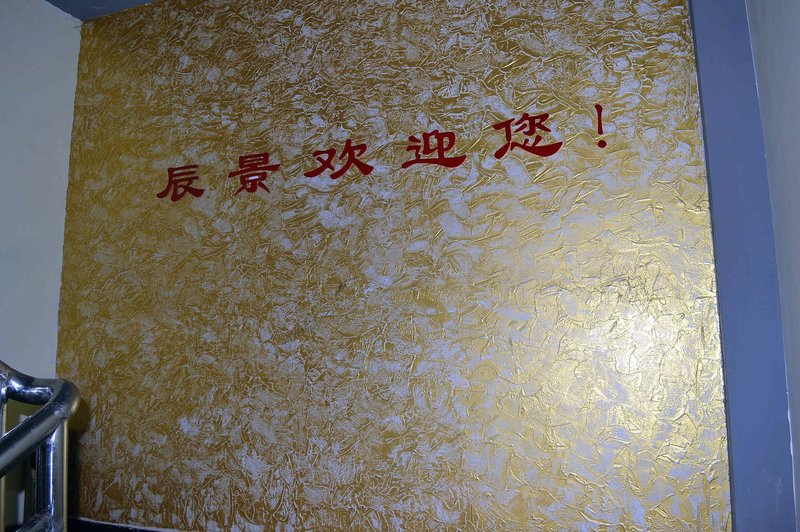 辰景欢迎您！